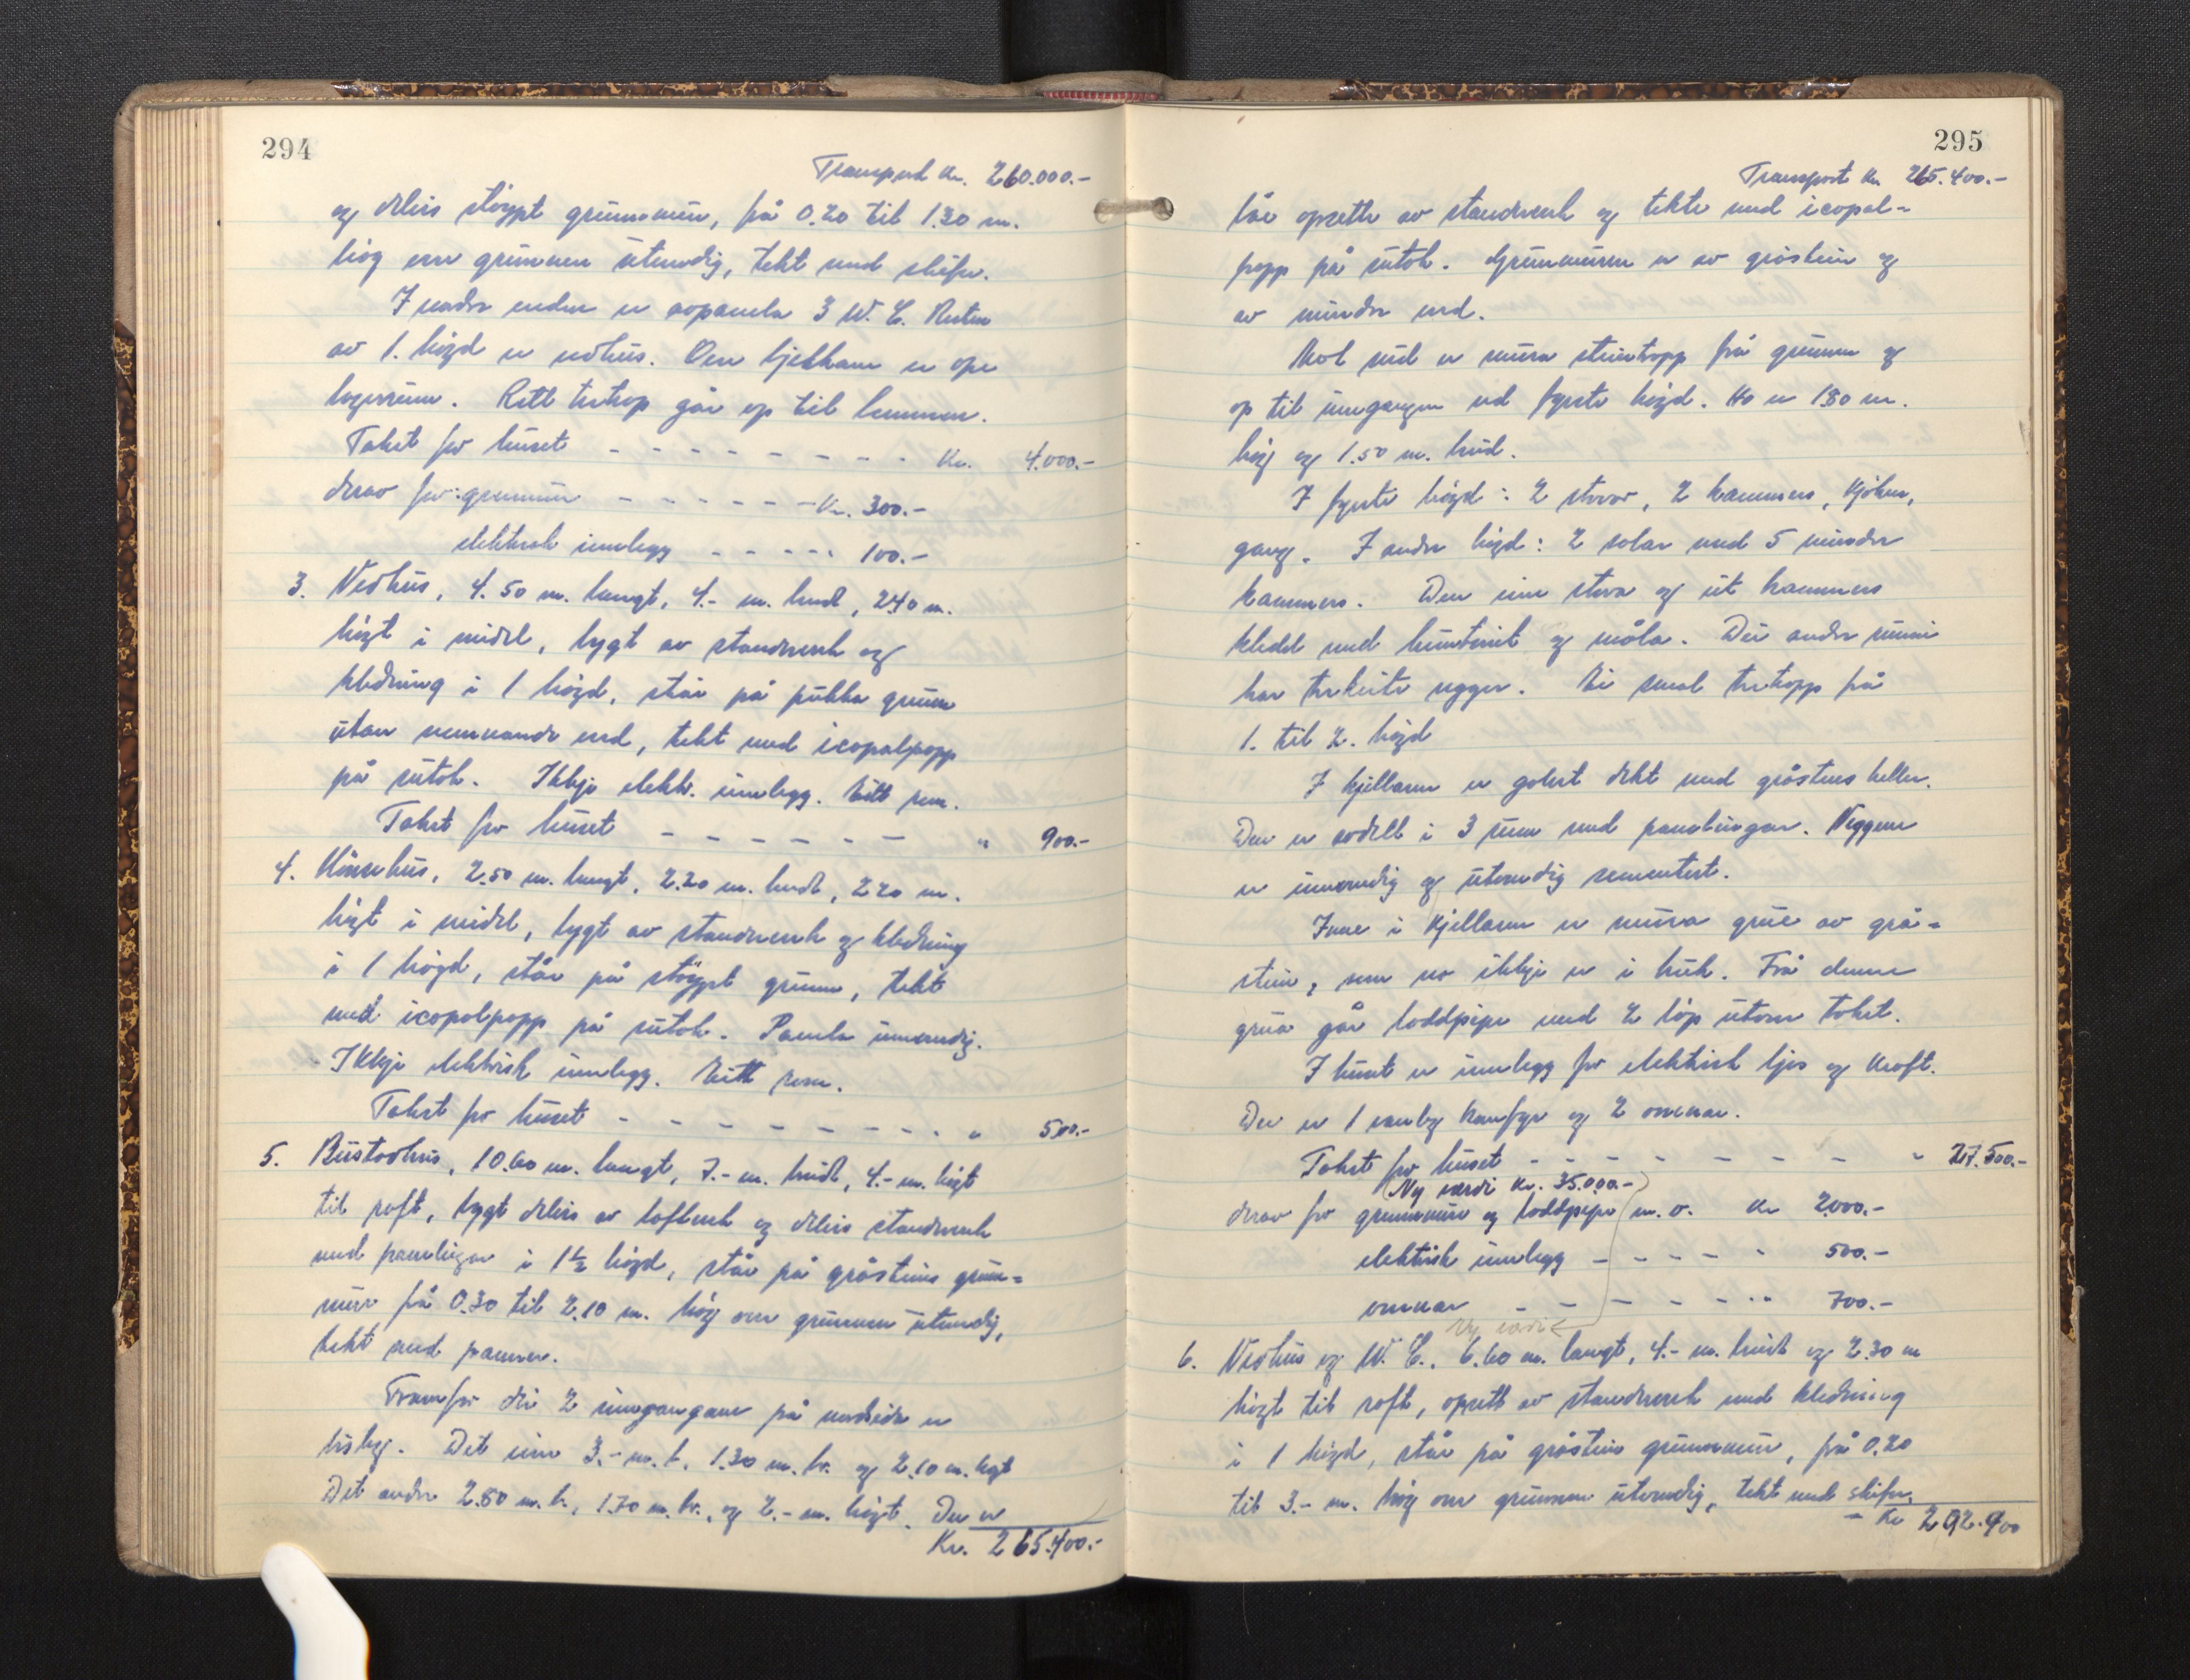 294
Transport Kr. 260.000.-
og delvis støypt grunnmur, frå 0.20 til 1.30 m.
høg over grunnen utvendig, tekt med skifer.
I nedre enden er avpanela 3 W. C. Resten
av 1. høgd er vedhus. Over bjelkane er ope
lagerrum. Rett tretrop går op til lemmen.
Takst for huset - - - - - - - - - Kr. 4.000.-
derav for: grunnmur - - - - - - Kr. 300.-
elektrisk innlegg - - - - " 100.-
3. Vedhus, 4.50 m. langt, 4.- m. breidt, 2.40 m.
høgt i midel, bygt av standverk og
kledning i 1 høgd, står på pukka grunn
utan nemnande verd, tekt med icopalpapp
på sutak. Ikkje elektr. innlegg. Eitt rom.
Takst for huset - - - - - - - " 900.-
4. Hønsehus, 2.50 m. langt, 2.20 m. breidt, 2.20 m.
høgt i midel, bygt av standverk og kledning
i 1 høgd, står på støypt grunn, tekt
med icopalpapp på sutak. Panela innvendig.
Ikkje elektrisk innlegg. Eitt rom.
Takst for huset - - - - - - - - - " 500.-
5. Bustadhus, 10.60 m. langt, 7.- m. breidt, 4.- m. høgt
til raft, bygt delvis av lafteverk og delvis standverk
med panelingar i 1½ høgd, står på gråsteins grunn=
mur frå 0.30 til 2.10 m. høg over grunnen utvendig,
tekt med panner.
Framfor dei 2 inngangane på nordsida er
bislag. Det eine 3.- m. l. 1.30 m. br. og 2.10 m. høgt
Det andre 2.80 m. l., 1.70 m. br., og 2.- m. høgt. Dei er
Kr. 265.400.-
295
Transport Kr 265.400.-
båe opsette av standverk og tekte med icopal=
papp på sutak. Grunnmuren er av gråstein og
av mindre verd.
Mot sud er mura steintropp frå grunnen og
op til inngangen ved fyrste høgd. Ho er 1.80 m.
høg og 1.50 m. breid.
I fyrste høgd: 2 stover, 2 kammers, kjøken,
gang. I andre høgd: 2 salar med 5 mindre
kammers. Den eine stova og eit kammers
kledd med huntonit og måla. Dei andre rumi
har trekvite vegger. Ei smal tretropp frå
1. til 2. høgd
I kjellaren er golvet dekt med gråsteins heller.
Den er avdelt i 3 rum med panelingar. Veggene
er innvendig og utvendig sementert.
Inne i kjellaren er mura grue av grå=
stein, som no ikkje er i bruk. Frå denne
grua går loddpipe med 2 løp utover taket.
I huset er innlegg for elektrisk ljos og kraft.
Der er 1 vanleg komfyr og 2 omnar.
Takst for huset - - - - - - - - " 27.500.-
(Ny verdi Kr. 35.000.-)
derav for grunnmur og loddpipe m. v. Kr 2.000.-
elektrisk innlegg - - - - " 500.-
omnar - - - - - - " 700.-
Ny verdi
6. Vedhus og W. C., 6.60 m. langt, 4.- m. breidt og 2.30 m
høgt til raft, opsett av standverk med kledning
i 1 høgd, står på gråsteins grunnmur, frå 0.20
til 3.- m. høg over grunnen utvendig, tekt med skifer.
- Kr 292.900